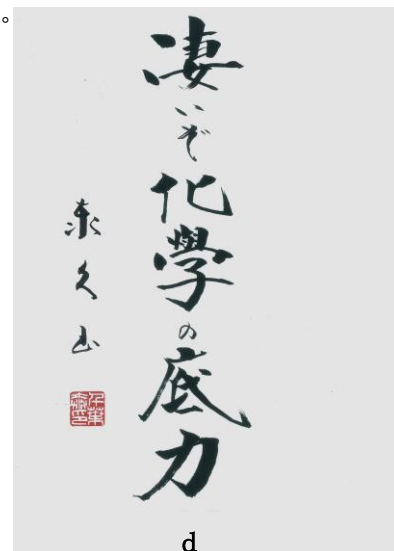 。
凄いぞ化學の底力
泰久山
d